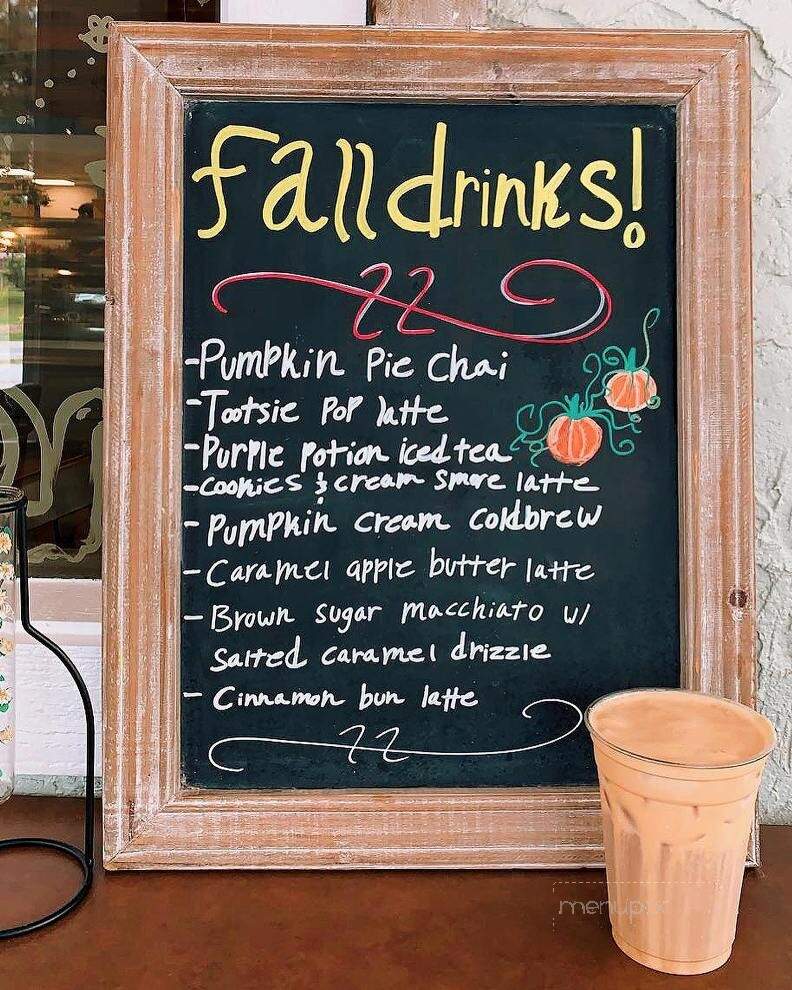 Fall drinks!
-Pumpkin Pie Chai
-Tootsie Pop latte
-Purple Potion iced tea
-cookies & cream smore latte
-Pumpkin cream coldbrew
-Caramel apple butter latte
-Brown sugar macchiato w/
salted caramel drizzle
-Cinnamon bun latte
menupix